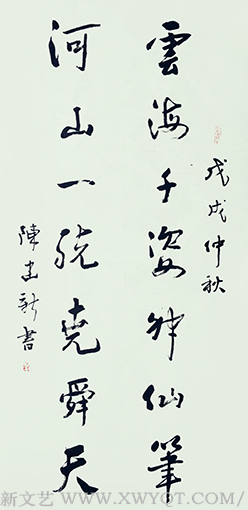 雲海千姿神仙筆
河山一統堯舜天
戊戌仲秋
陳建新書
新文艺 WWW.XWYQT.COM/